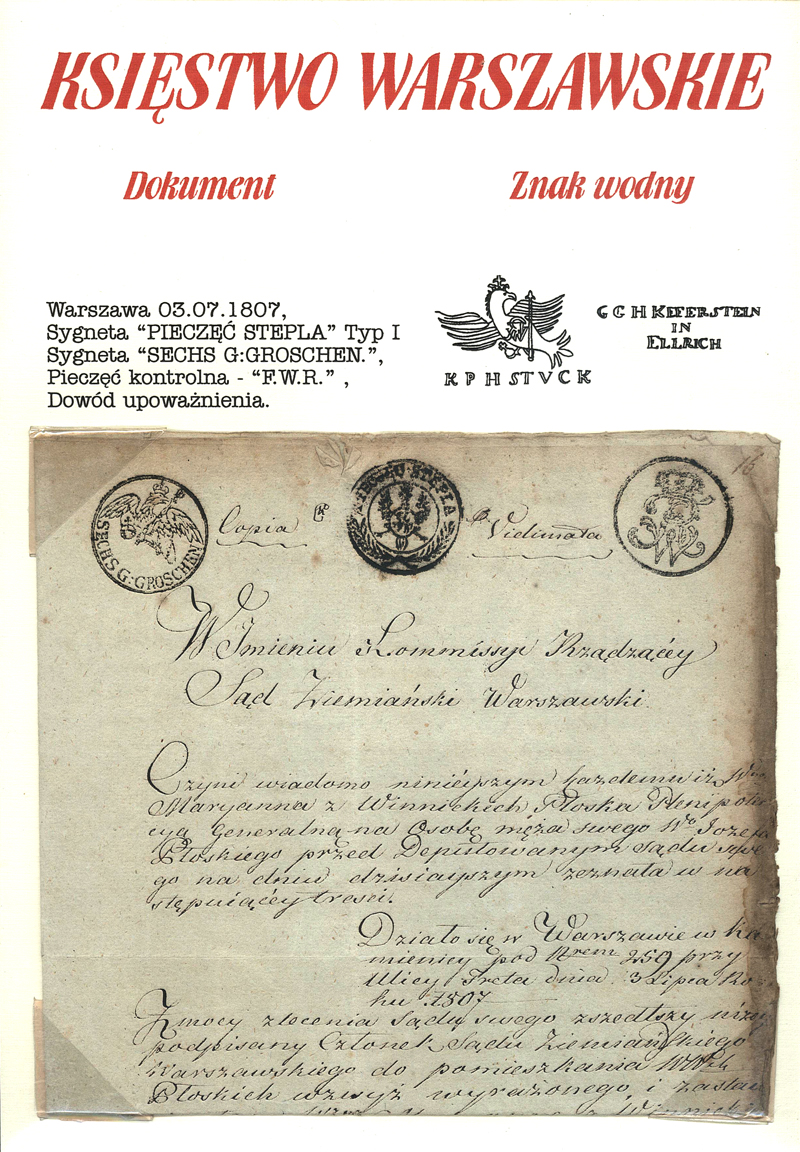 KSIĘSTWO WARSZAWSKIE
Dokument
Znak wodny
Warszawa 03.07.1807,
Sygneta “PIECZĘĆ STEPLA” Typ I
Sygneta “SECHS G:GROSCHEN.”,
Pieczęć kontrolna - “F.W.R.” ,
Dowód upoważnienia.
K P H STVCK
G C H KEFERSTEIN
IN
ELLRICH
16
SECHS G:GROSCHEN
Copia
PIECZĘĆ STEPLA
Vidimata
FWR
W Imieniu Kommissyi Rządzącéy
Sąd Ziemiański Warszawski.
Czyni wiadomo ninieyszym każdemu iż
Maryanna z Winnickich Płoska Plenipoten
cyą Generalną na Osobę męża swego Wo Jozefa
Płoskiego przed Deputowanym Sądu swe
go na dniu dzisiayszym zeznała w na
stępuiącéy tresci.
Działo się w Warszawie w ka
mienicy pod Nrem 250 przy
Ulicy Freta dnia 3 Lipca Ro
ku 1807
Z mocy zlecenia Sądu swego zszedłszy niżey
podpisany Członek Sądu Ziemiańskiego
Warszawskiego do pomieszkania
Płoskich wzwyż wyrażonego i zastaw